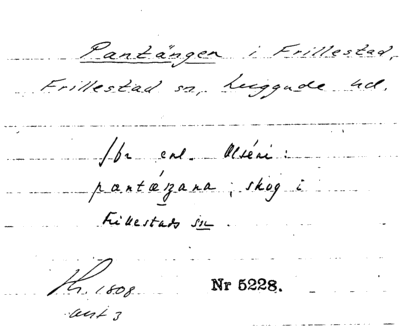 Pantängen i Frillestad,
Frillestad sn, Luggude hd.
fbr enl. Olséni:
pantæŋana, skog i
Frillestads sn.
Th. 1808 Nr 5228.
ant 3